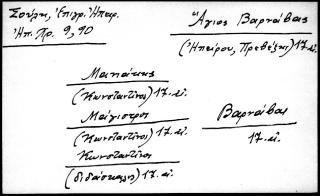 Σούλη, Ἐπιγρ. Ἠπειρ.
Ἠπ. Χρ. 9, 90
Ἅγιος Βαρνάβας
(Ἠπείρου, Πρεβέζης) 17. αἰ.
Μανάκης
(Κωνσταντῖνος) 17. αἰ.
Μάγιστρος
(Κωνσταντῖνος) 17. αἰ.
Κωνσταντῖνος
(διδάσκαλος) 17. αἰ.
Βαρνάβας
17. αἰ.